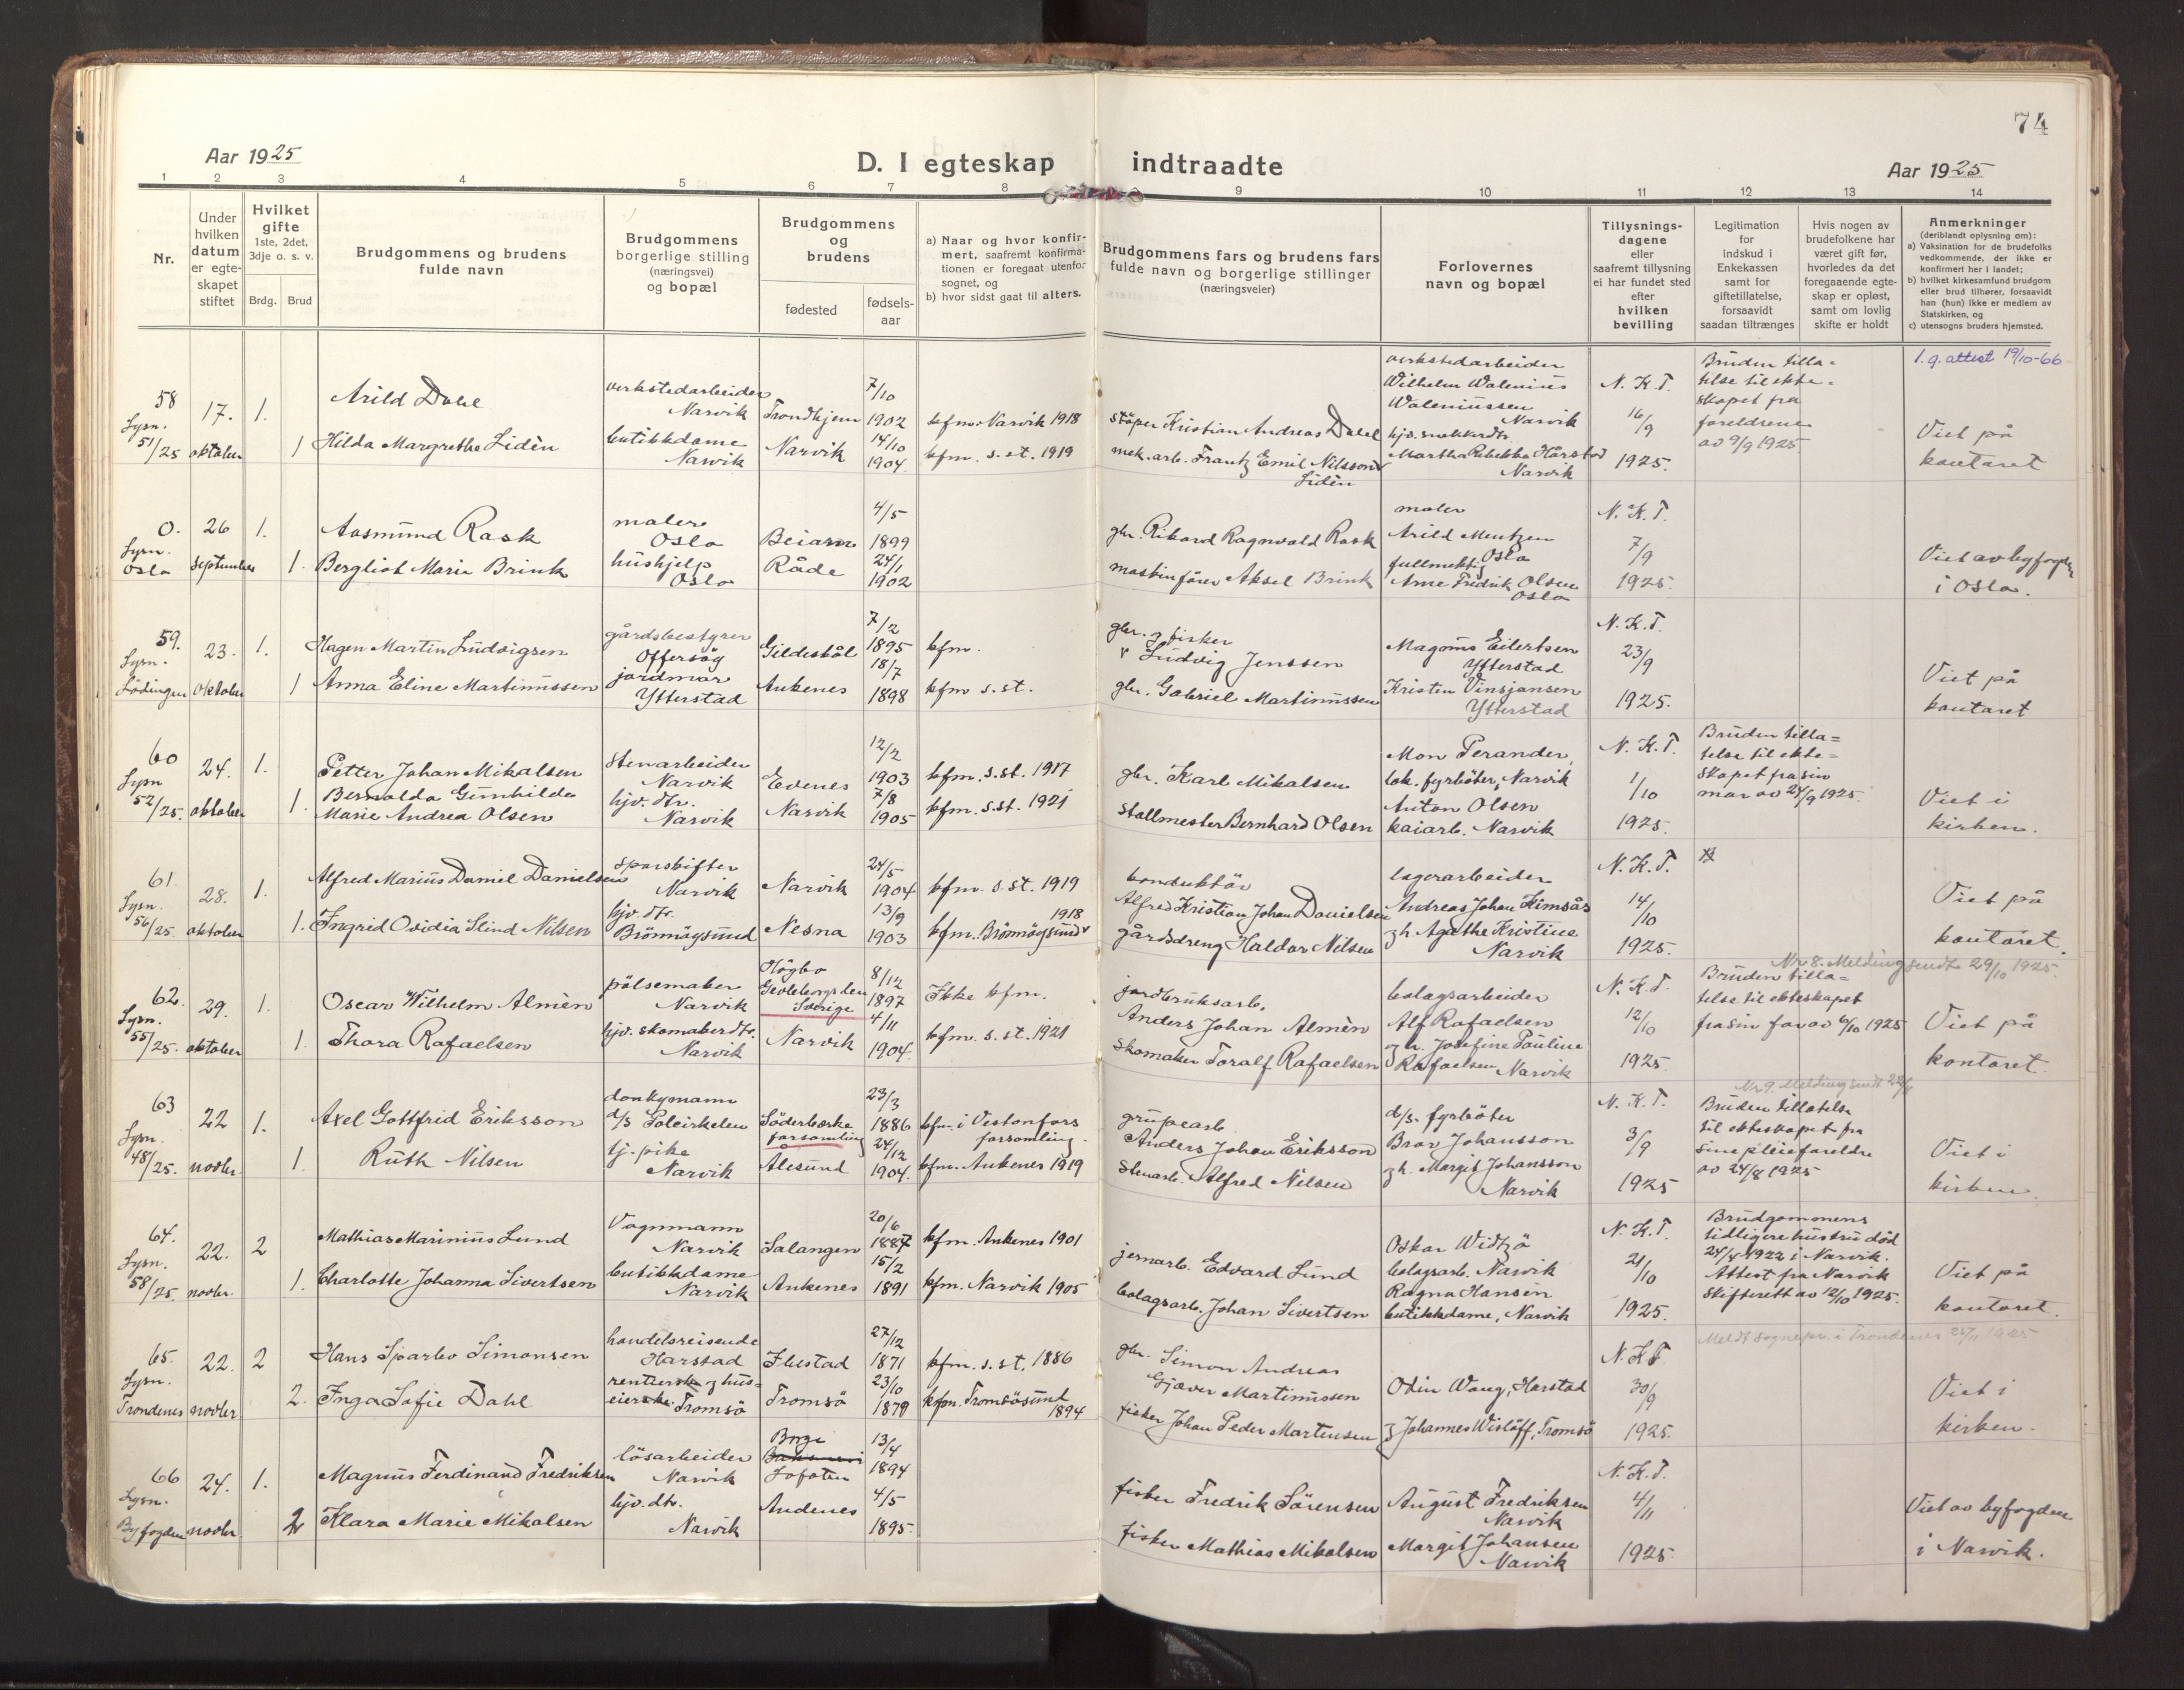 74
Aar 1925
D. I egteskap indtraadte
Aar 1925
1 2 3 4 5 6 7 8 9 10 11 12 13 14
Nr.
Under hvilken datum er egteskapet stiftet
Hvilket gifte
1ste, 2det, 3dje o. s. v.
Brdg. Brud
Brudgommens og brudens fulde navn
Brudgommens borgerlige stilling (næringsvei) og bopæl
Brudgommens og brudens
fødested
fødselsaar
a) Naar og hvor konfirmert, saafremt konfirmationen er foregaat utenfor sognet, og
b) hvor sidst gaat til alters.
Brudgommens fars og brudens fars fulde navn og borgerlige stillinger (næringsveier)
Forlovernes navn og bopæl
Tillysningsdagene eller saafremt tillysning ei har fundet sted efter hvilken bevilling
Legitimation for indskud i Enkekassen samt for giftetillatelse, forsaavidt saadan tiltrænges
Hvis nogen av brudefolkene har været gift før, hvorledes da det foregaaende egteskap er opløst, samt om lovlig skifte er holdt
Anmerkninger
(deriblandt oplysning om):
a) Vaksination for de brudefolks vedkommende, der ikke er konfirmert her i landet;
b) hvilket kirkesamfund brudgom eller brud tilhører, forsaavidt han (hun) ikke er medlem av Statskirken, og
c) utensogns bruders hjemsted.
58 Lysn. 51/25
17. oktober
1. 1
Arild Dahl
Hilda Margrethe Lidèn
verkstedarbeider Narvik
butikkdame Narvik
Trondhjem
Narvik
7/10 1902
14/10 1904
kfm. Narvik 1918
kfm. s. st. 1919
støper Kristian Andreas Dahl
mek. arb. Frantz Emil Nilsson Lidèn
verkstedarbeider
Wilhelm Walenius
Waleniussen
Narvik
hjv. snekkerdtr.
Martha Rebekka Hårstad
Narvik
N. K. T. 16/9 1925.
Bruden tilla=
telse til ekte=
skapet fra
foreldrene
av 9/9 1925.
l. g. attest 19/10-66
Viet på
kontoret
0. Lysn. Oslo
26 september
1. 1.
Aasmund Rask
Bergliot Marie Brink
maler Oslo
hushjelp Oslo
Beiarn
Råde
4/5 1899
24/1 1902
gbr. Rikard Ragnvald Rask
maskinfører Aksel Brink
maler
Arild Mentzen
Oslo
fullmektig
Arne Fredrik Olsen
Oslo
N. K. T. 7/9 1925.
Viet av byfogden
i Oslo.
59. Lysn. Lödingen
23. oktober
1. 1
Hagen Martin Ludvigsen
Anna Eline Martinussen
gårdsbestyrer Offersøy
jordmor Ytterstad
Gildeskål
Ankenes
7/2 1895
18/7 1898
kfm.
kfm s. st.
gbr. og fisker
Ludvig Jenssen
gbr. Gabriel Martinussen
Magnus Eilertsen
Ytterstad
Kristen Vinsjansen
Ytterstad
N. K. T. 23/9 1925.
Viet på
kontoret
60 Lysn 52/25.
24. oktober
1. 1.
Petter Johan Mikalsen
Bernalda Gunhilda
Marie Andrea Olsen
stenarbeider Narvik
hjv. dtr. Narvik
Evenes
Narvik
12/2 1903
7/8 1905
kfm. s. st. 1917
kfm. s. st. 1921
gbr. Karl Mikalsen
stallmester Bernhard Olsen
Mon Perander,
lok. fyrbøter, Narvik
Anton Olsen
kaiarb. Narvik
N. K. T. 1/10 1925.
Bruden tilla=
telse til ekte=
skapet fra sin
mor av 24/9 1925.
Viet i
kirken.
61. Lysn. 56/25.
28. oktober
1. 1.
Alfred Marius Daniel Danielsen
Ingrid Ovidia Slind Nilsen
sporskifter Narvik
hjv. dtr. Brönnöysund
Narvik
Nesna
24/5 1904
13/9 1903
kfm. s. st. 1919
kfm. Brönnöysund 1918
konduktör
Alfred Kristian Johan Danielsen
gårdsdreng Haldor Nilsen
lagerarbeider
Andreas Johan Kimsås
og h. Agathe Kristine
Narvik
N. K. T. 14/10 1925.
Viet på
kontoret.
62. Lysn. 55/25.
29. oktober
1. 1.
Oscar Wilhelm Almèn
Thora Rafaelsen
pölsemaker Narvik
hjv. skomakerdtr. Narvik
Högbo
Gevleborgs len
Sverige
Narvik
8/12 1897
4/11 1904.
Ikke kfm.
kfm. s. st. 1921
jordbruksarb.
Anders Johan Almèn
skomaker Toralf Rafaelsen
bolagsarbeider
Alf Rafaelsen
og h. Josefine Pauline
Rafaelsen Narvik
N. K. T. 12/10 1925.
Nr. 8. Melding sendt 29/10 1925.
Bruden tilla=
telse til ekteskapet
fra sin far av 6/10 1925
Viet på
kontoret.
63 Lysn. 48/25.
22 novbr.
1. 1.
Axel Gottfrid Eriksson
Ruth Nilsen
donkymann
d/s Polcirkelen
tj. pike Narvik
Söderbärke
forsamling
Ålesund
23/3 1886
24/12 1904.
kfm. i Vestanfors forsamling.
kfm. Ankenes 1919
grupearb
Anders Johan Eriksson
stenarb. Alfred Nilsen
d/s. fyrbøter
Bror Johansson
og h. Margit Johansson
Narvik
N. K. T. 3/9 1925
Bruden tillatelse
til ekteskapet fra
sine pleieforeldre
av 24/8 1925
Viet i
kirken.
64. Lysn. 58/25.
22. novbr.
2 1.
Mathias Marinius Lund
Charlotte Johanna Sivertsen
Vognmann Narvik
butikkdame Narvik
Salangen
Ankenes
20/6 1887
15/2 1891
kfm. Ankenes 1901
kfm. Narvik 1905
jernarb. Edvard Lund
bolagsarb. Johan Sivertsen
Oskar Widtzö
bolagsarb. Narvik
Ragna Hansen
butikkdame, Narvik
N. K. T. 21/10 1925.
Brudgommens
tidligere hustru död
24/4 1922 i Narvik.
Attest fra Narvik
Skifterett av 12/10 1925.
Viet på
kontoret.
65. Lysn. Trondenes
22. novbr.
2 2.
Hans Sparbo Simonsen
Inga Sofie Dahl
handelsreisende
Harstad
rentier og hus=
eierske Tromsö
Ibestad
Tromsö
27/12 1871
23/10 1879
kfm. s. st. 1886
kfm. Tromsösund 1894
gbr. Simon Andreas
Gjæver Martinussen
fisker Johan Peder Martensen
Odin Wang, Harstad
og Johannes Wislöff, Tromsö
N. K. T. 30/9 1925.
Meldt sognepr. i Trondenes 26/11 1925
Viet i
kirken.
66 Lysn. Byfogden
24. novbr.
1. 2
Magnus Ferdinand Fredriksen
Klara Marie Mikalsen
lösarbeider Narvik
hjv. dtr. Narvik
Borge
Lofoten
Andenes
13/4 1894
4/5 1895.
fisker Fredrik Sörensen
fisker Mathias Mikalsen
August Fredriksen
Narvik
Margit Johansen
Narvik
N. K. T. 4/11 1925.
Viet av byfogden
i Narvik.